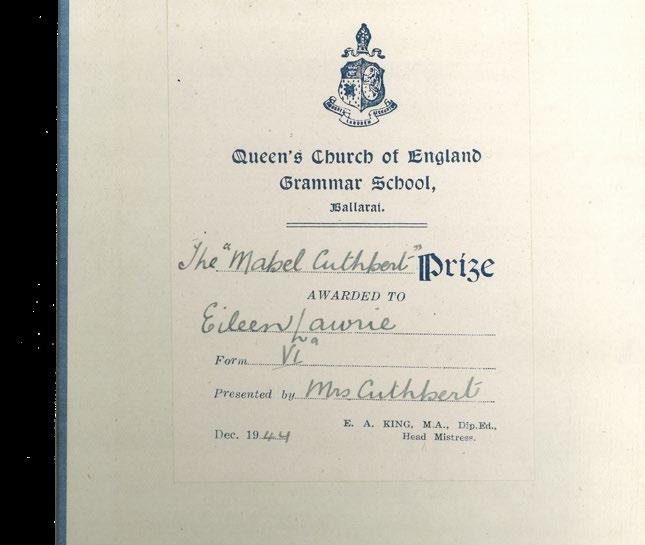 LABOREM
Queen's Church of England
Grammar School,
Ballarat.
The "Mabel Cuthbert" Prize
AWARDED TO
Eileen Lawrie
Form VI
Presented by Mrs Cuthbert
Dec. 1944
E. A. KING, M.A., Dip.Ed.,
Head Mistress.